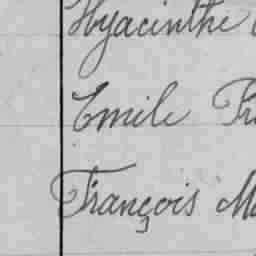 Hyacinthe
Emile
François